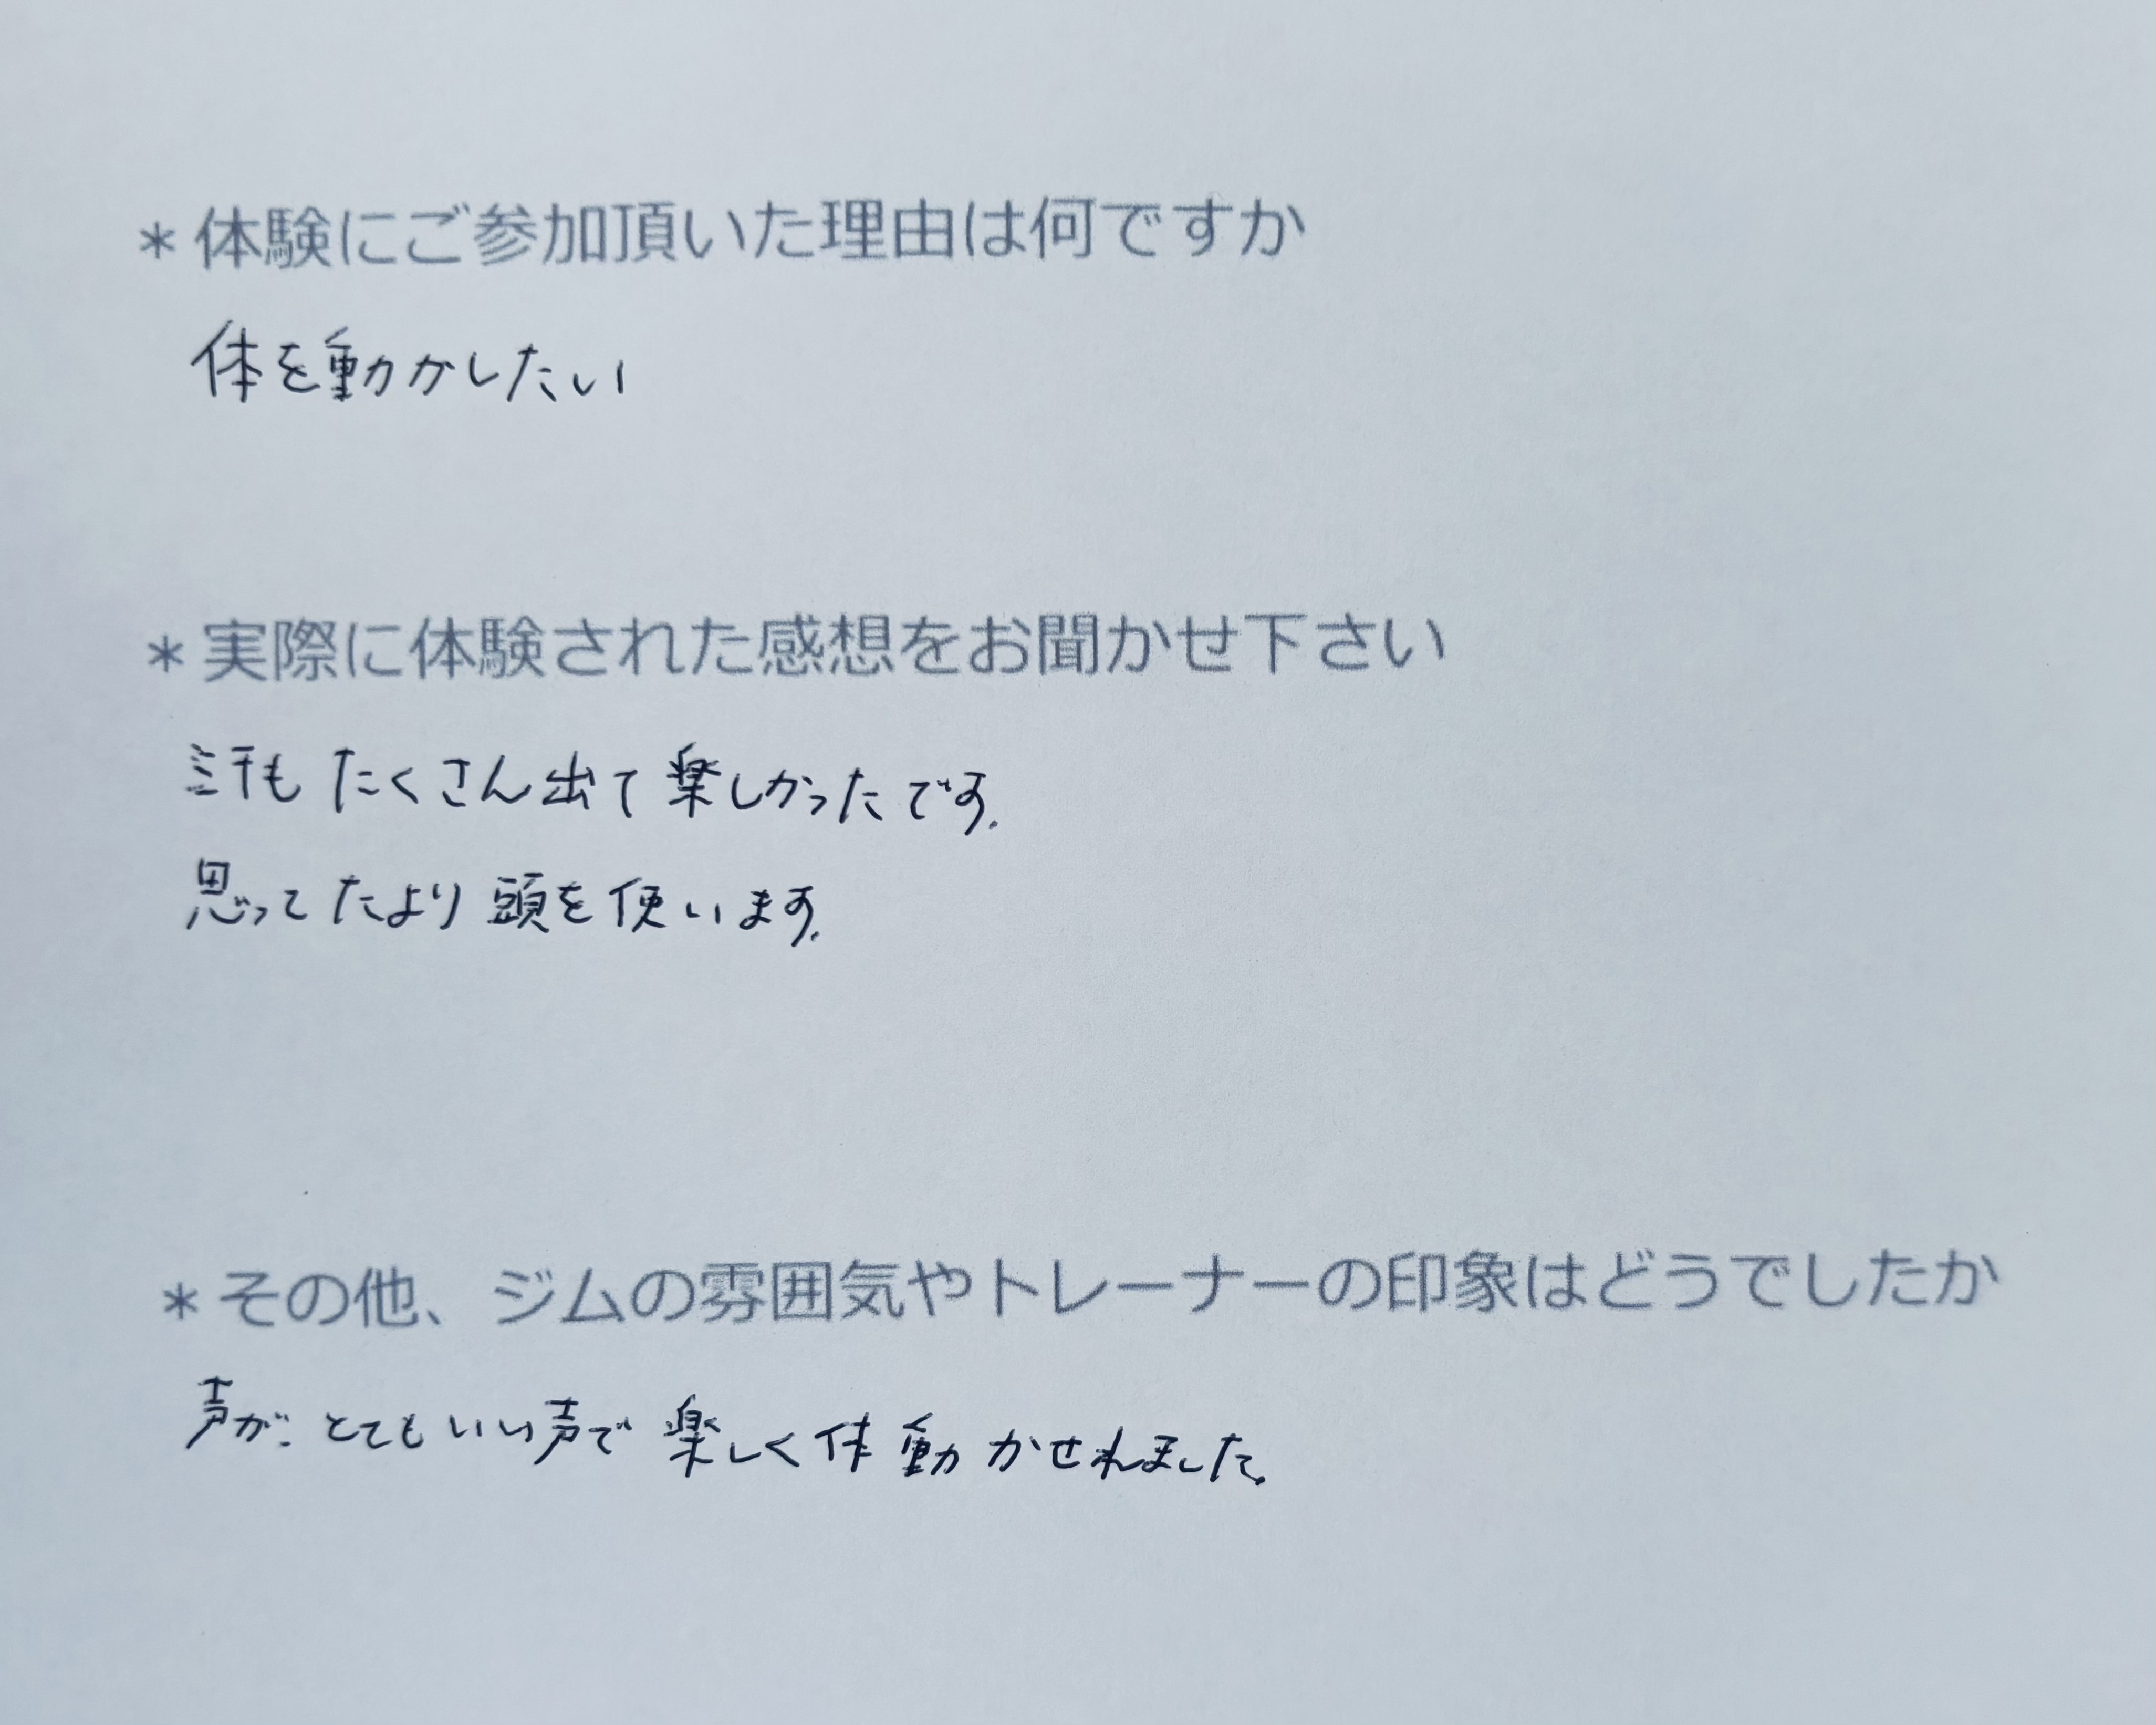 ＊体験にご参加頂いた理由は何ですか
体を動かしたい
＊実際に体験された感想をお聞かせ下さい
汗もたくさん出て楽しかったです。
思ってたより頭を使います。
＊その他、ジムの雰囲気やトレーナーの印象はどうでしたか
声がとてもいい声で楽しく体動かせれました。